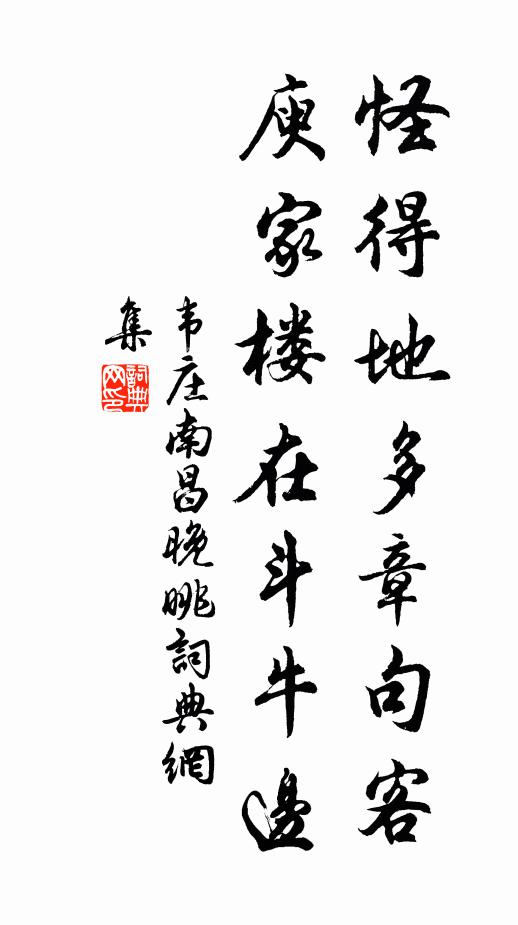 怪得地多章句客
庾家楼在斗牛邊
韦庄南昌晚眺詞典網
集
詞典网印